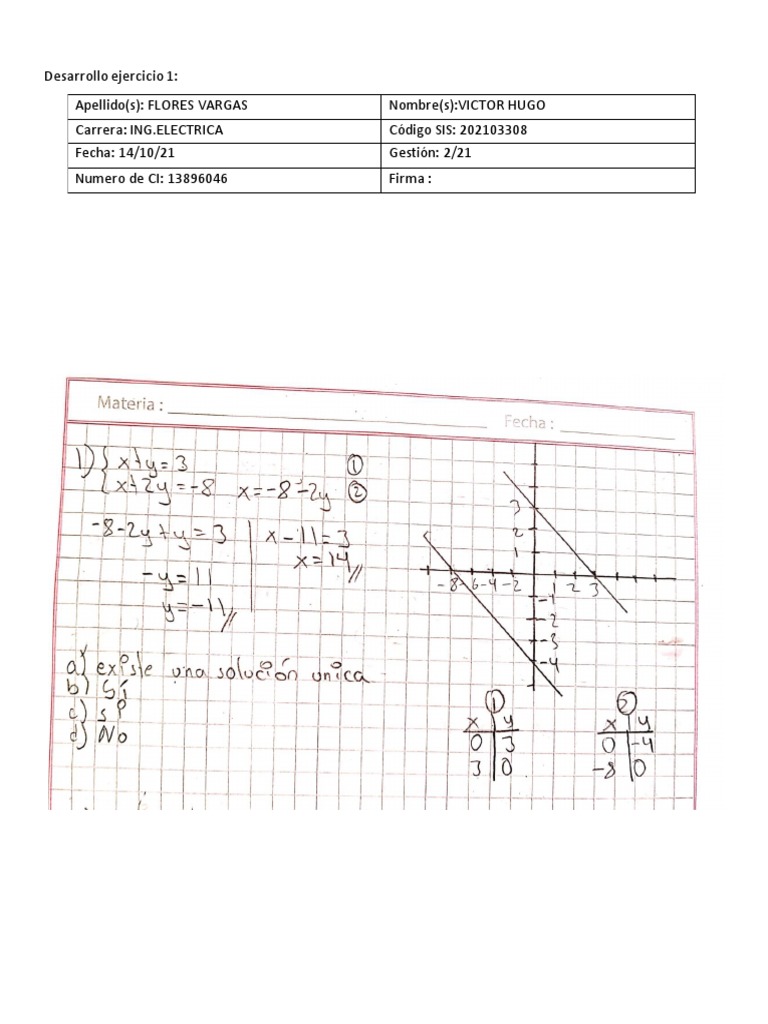 Desarrollo ejercicio 1:
Apellido(s): FLORES VARGAS Nombre(s):VICTOR HUGO
Carrera: ING.ELECTRICA Código SIS: 202103308
Fecha: 14/10/21 Gestión: 2/21
Numero de CI: 13896046 Firma :
Materia : Fecha :
1) { x+y=3 ①
{ x+2y=-8 x=-8-2y ②
-8-2y+y=3 x-11=3
x=14//
-y=11
y=-11//
3
2
1
-8 -6 -4 -2 1 2 3
-1
-2
-3
-4
a) existe una solución unica
b) Sí
c) sí
d) No
① 
x y
0 3
3 0
②
x y
0 -4
-8 0